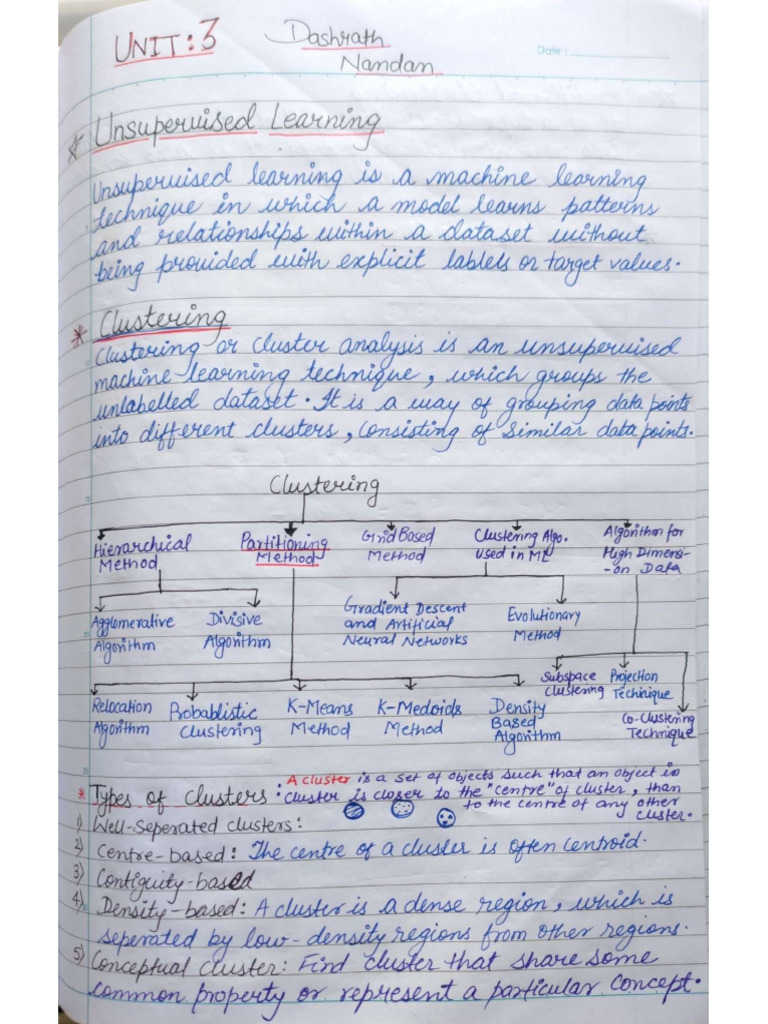 UNIT: 3
Dashrath
Nandan
Date :
* Unsupervised Learning
Unsupervised learning is a machine learning
technique in which a model learns patterns
and relationships within a dataset without
being provided with explicit lablels or target values.
* Clustering
Clustering or cluster analysis is an unsupervised
machine learning technique, which groups the
unlabelled dataset. It is a way of grouping data points
into different clusters, consisting of similar data points.
Clustering
Hierarchical
Method
Partitioning
Method
Grid Based
Method
Clustering Algo.
used in ML
Algorithm for
High Dimensi-
-on Data
Agglomerative
Algorithm
Divisive
Algorithm
Gradient Descent
and Artificial
Neural Networks
Evolutionary
Method
Subspace
Clustering
Projection
Technique
Co-Clustering
Technique
Relocation
Algorithm
Probablistic
Clustering
K-Means
Method
K-Medoids
Method
Density
Based
Algorithm
* Types of clusters:
A cluster is a set of objects such that an object in
cluster is closer to the "centre" of cluster, than
to the centre of any other
cluster.
1) Well-Seperated clusters:
2) Centre-based: The centre of a cluster is often centroid.
3) Contiguity-based
4) Density-based: A cluster is a dense region, which is
seperated by low-density regions from other regions.
5) Conceptual cluster: Find cluster that share some
common property or represent a particular concept.